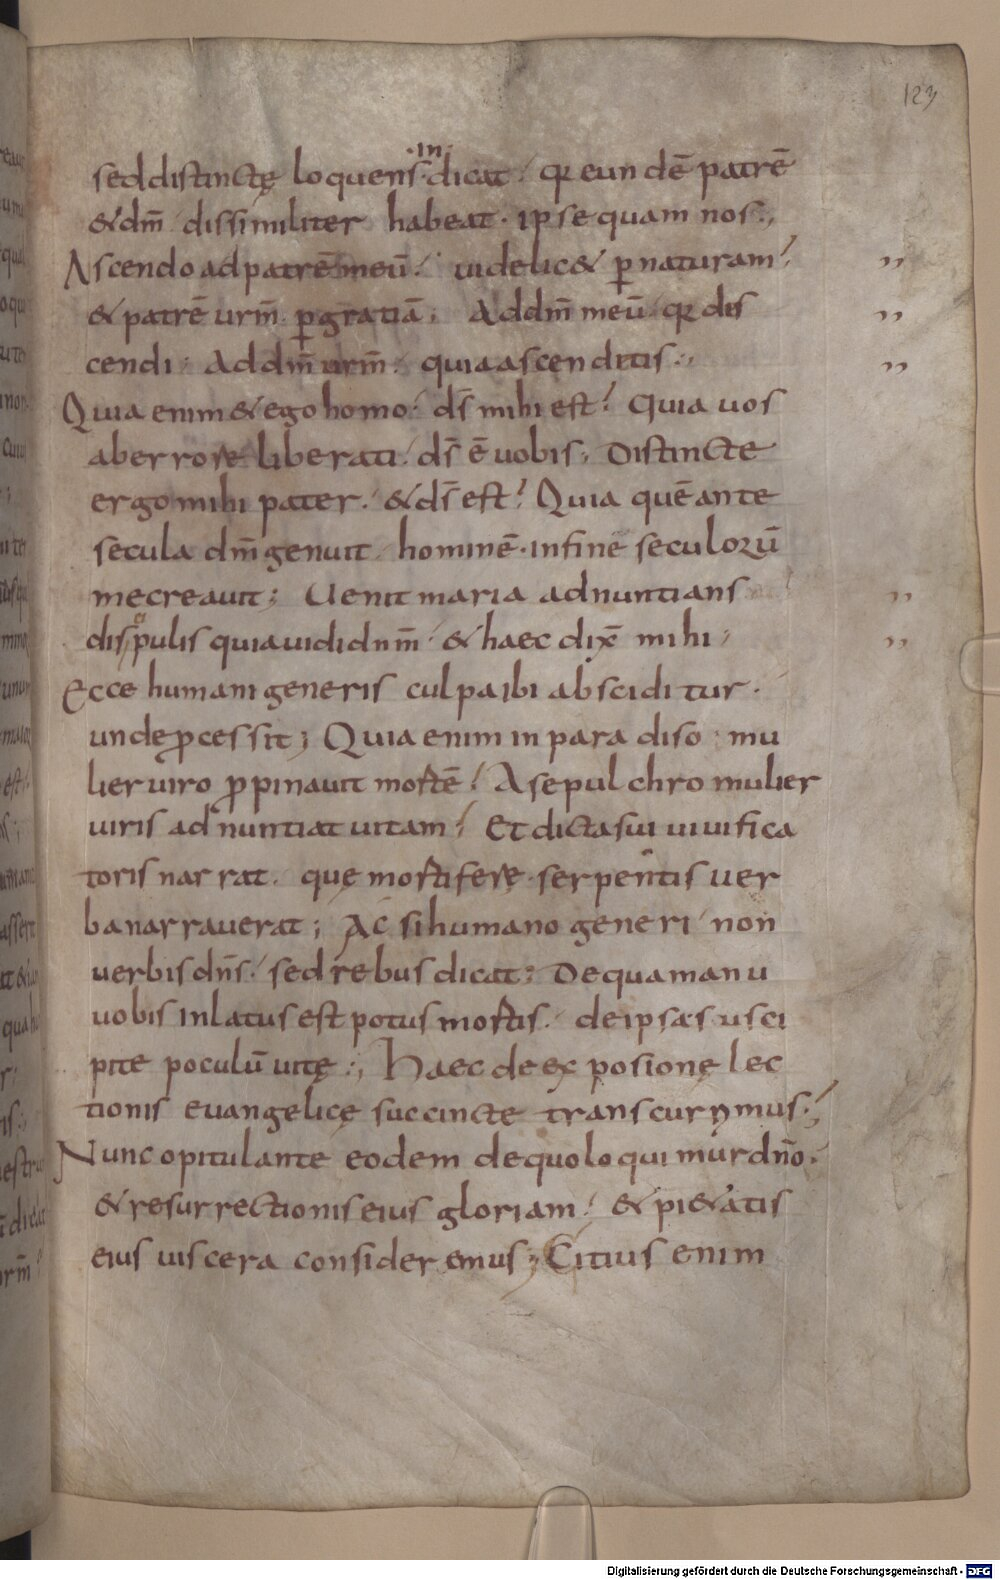 123
sed distinctę loquens ·in· dicat / qr eundē patrē
& dm̄ / dissimiliter habeat · ipse quam nos ;,
Ascendo ad patrē meū / uidelic& ꝑ naturam /
& patrē urm̄ ꝑ gratiā ; Ad dm̄ meū / qr dis
cendi ; Ad dm̄ urm̄ . quia ascenditis ;,
Quia enim & ego homo / ds̄ mihi est ? Quia uos
ab errore liberati / ds̄ ē uobis ; Distincte
ergo mihi pater / & ds̄ est ? Quia quē ante
secula dm̄ genuit / hominē · in fine seculorū
me creauit ; Uenit maria adnuntians
discipulis quia uidi dnm̄ / & haec dix̄ mihi ;
Ecce humani generis culpa ibi absciditur ·
unde ꝓcessit ; Quia enim in paradiso · mu
lier uiro ꝓpinauit mortē / A sepulchro mulier
uiris adnuntiat uitam / Et dicta sui uiuifica
toris narrat · quę mortiferę serpentis uer
ba narrauerat ; Ac si humano generi / non
uerbis dn̄s / sed rebus dicat ; De qua manu
uobis inlatus est potus mortis · de ipsa susci
pite poculū uitę ;, Haec de exposionę lec
tionis euangelicę succincte transcurrimus ;
Nunc opitulante eodem de quo loquimur dn̄o ·
& resurrectionis eius gloriam / & pi&atis
eius uiscera consideremus ; Citius enim
Digitalisierung gefördert durch die Deutsche Forschungsgemeinschaft - DFG